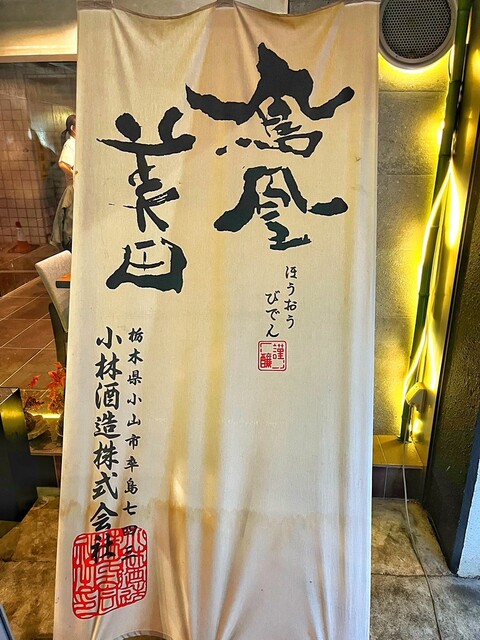 鳳凰
美田
ほうおう
びでん
謹醸
栃木県小山市卒島七四三
小林酒造株式会社